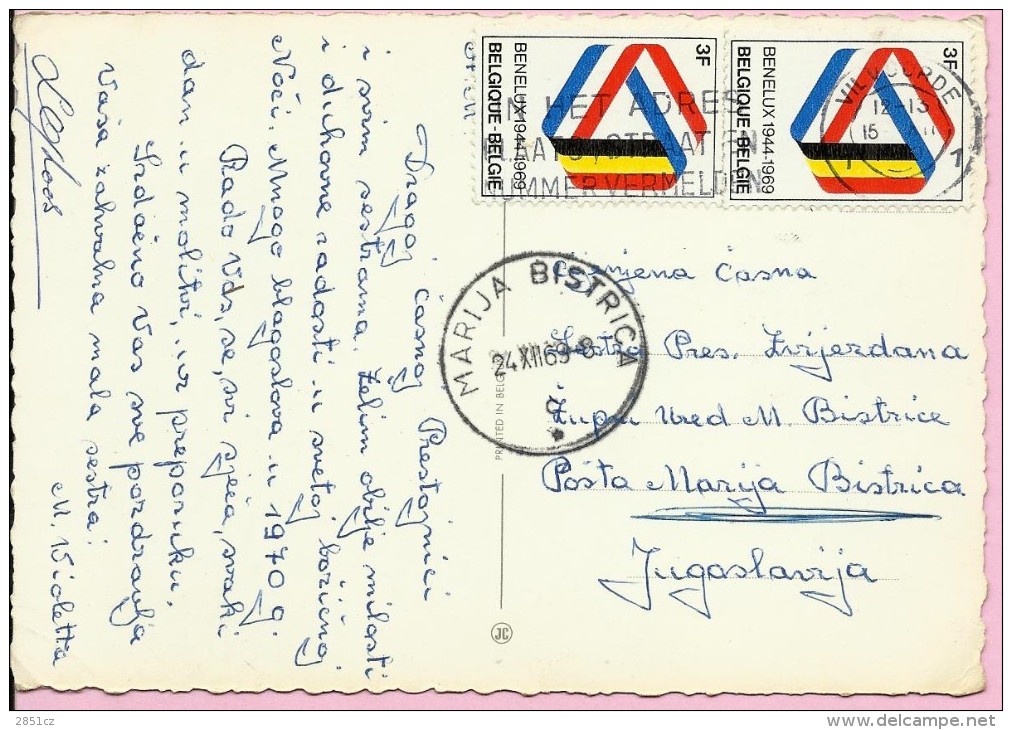 Dragoj časnoj Prestojnici
i svim sestrama. Želim obilje milosti
i duhovne radosti u svetoj božićnoj
Noći. Mnogo blagoslova u 1970 g.
Rado Vas, se, svi sjeća, svaki
dan u molitvi, uz preporuku,
Srdačno Vas sve pozdravlja
Vaša zahvalna mala sestra:
M. Violetta
3F
BENELUX 1944-1969
BELGIQUE-BELGIE
3F
BENELUX 1944-1969
BELGIQUE-BELGIE
IN HET ADRES
PLAATS STRAAT EN
NUMMER VERMELDEN
VILVOORDE
12-13
15
1
MARIJA BISTRICA
24 XII 69-8
PRINTED IN BELG
JC
Cijenjena Časna
Sestra Pres. Zvjezdana
Župni Ured M. Bistrice
Pošta Marija Bistrica
Jugoslavija
2851cz
delcampe.net